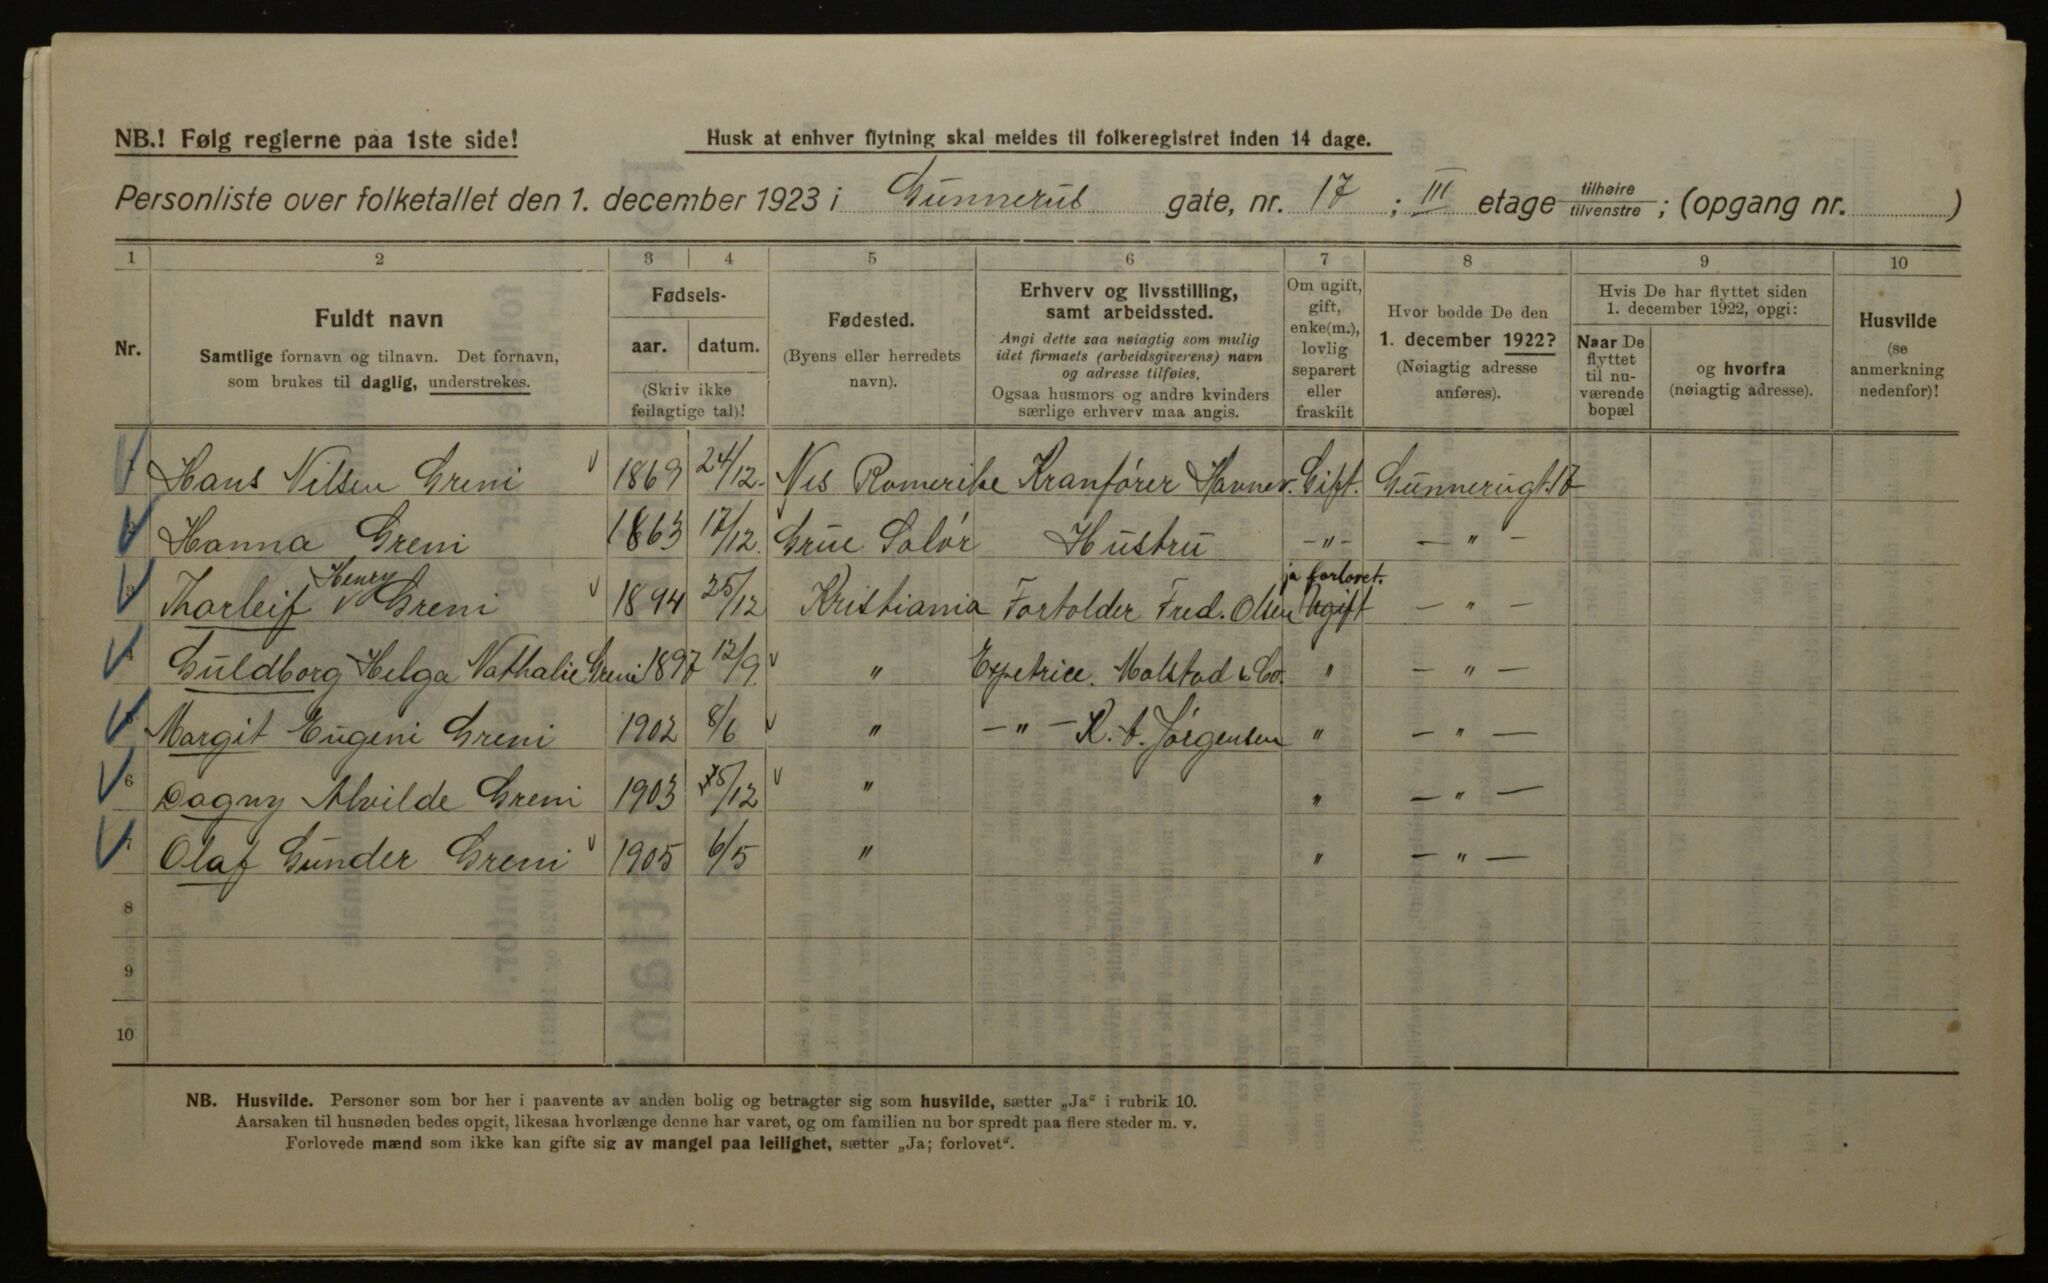 NB.! Følg reglerne paa 1ste side! Husk at enhver flytning skal meldes til folkeregistret inden 14 dage.
Personliste over folketallet den 1. december 1923 i Gunnerus gate, nr. 17 ; III etage tilhøire/tilvenstre ; (opgang nr. )
1 2 3 4 5 6 7 8 9 10
Nr.
Fuldt navn
Samtlige fornavn og tilnavn. Det fornavn,
som brukes til daglig, understrekes.
Fødsels-
aar. datum.
(Skriv ikke
feilagtige tal)!
Fødested.
(Byens eller herredets
navn).
Erhverv og livsstilling,
samt arbeidssted.
Angi dette saa nøiagtig som mulig
idet firmaets (arbeidsgiverens) navn
og adresse tilføies.
Ogsaa husmors og andre kvinders
særlige erhverv maa angis.
Om ugift,
gift,
enke(m.),
lovlig
separert
eller
fraskilt
Hvor bodde De den
1. december 1922?
(Nøiagtig adresse
anføres).
Hvis De har flyttet siden
1. december 1922, opgi:
Naar De
flyttet
til nu-
værende
bopæl
og hvorfra
(nøiagtig adresse).
Husvilde
(se
anmerkning
nedenfor)!
1 Hans Nilsen Greni 1869 24/12. Nes Romerike Kranfører Havnev. Gift. Gunnerusgt. 17
2 Hanna Greni 1863 17/12. Grue Solør Hustru -"- - " -
Henry ja forlovet.
3 Thorleif Greni 1894 25/12 Kristiania Fortolder Fred. Olsen Ugift - " -
4 Guldborg Helga Nathalie Greni 1897 12/9. " Expetrice. Molstad & Co. " - " -
5 Margit Eugeni Greni 1902 8/6 " - " - K. A. Jørgensen " - " -
6 Dagny Alvilde Greni 1903 15/12 " " - " -
7 Olaf Gunder Greni 1905 6/5 " " - " -
8
9
10
NB. Husvilde. Personer som bor her i paavente av anden bolig og betragter sig som husvilde, sætter „Ja“ i rubrik 10.
Aarsaken til husnøden bedes opgit, likesaa hvorlænge denne har varet, og om familien nu bor spredt paa flere steder m. v.
Forlovede mænd som ikke kan gifte sig av mangel paa leilighet, sætter „Ja; forlovet“.